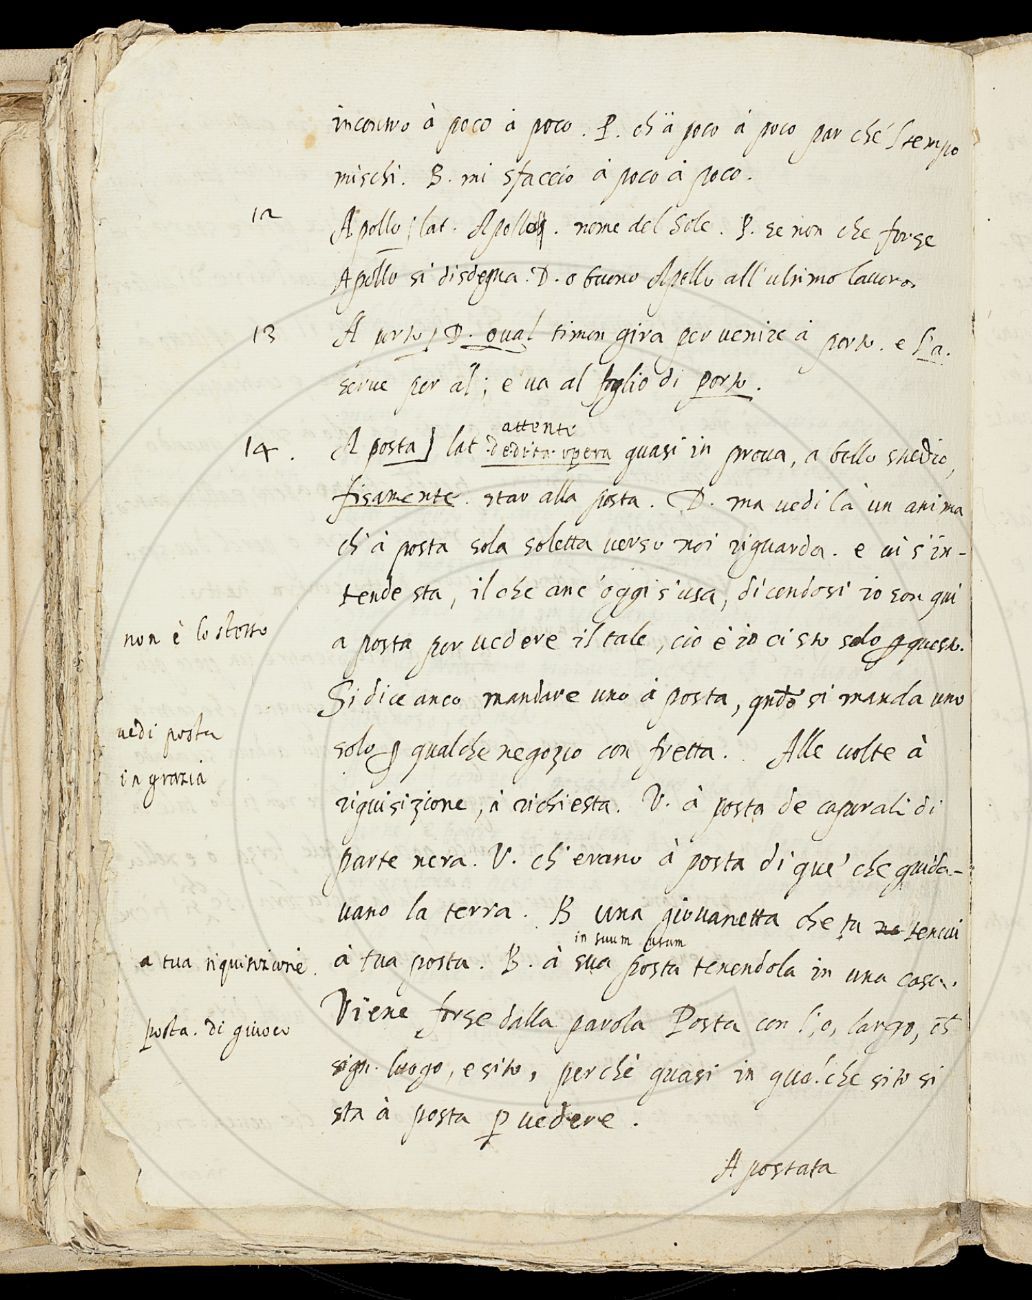 incontro à poco à poco. P. ch'à poco à poco par che 'l tempo
mischi. B. mi sfaccio à poco à poco.
12 Apollo] lat. Apollo. nome del Sole. P. se non che forse
Apollo si disdegna. D. o buono Apollo all'ultimo lavoro.
13 A porto] D. qual timon gira per venire à porto. e l'a.
serve per al; e va al foglio di porto.
attente
14. A posta] lat. dedita opera quasi in prova, a bello studio,
fisamente. star alla posta. D. ma vedi là un anima
ch'à posta sola soletta verso noi riguarda. e vi s'in-
tende sta, il che anc'oggi s'usa, dicendosi io son qui
non è lo stesso
a posta per vedere il tale, ciò è io ci sto solo p questo.
Si dice anco mandare uno à posta, qndo si manda uno
vedi posta
solo p qualche negozio con fretta. Alle volte à
in grazia
riquisizione, à richiesta. V. à posta de caporali di
parte nera. V. ch'erano à posta di que' che guida-
vano la terra. B una giovanetta che tu ne tenevi
in suum usum
a tua riquisizione.
à tua posta. B. à sua posta tenendola in una casa.
Viene forse dalla parola Posta con l'o, largo,
posta. di giuoco
sign. luogo, e sito, perchè quasi in qualche sito si
sta à posta p vedere.
Apostata